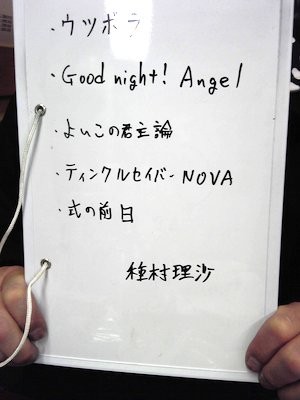 ・ウツボラ
・Good night! Angel
・よいこの君主論
・ティンクルセイバーNOVA
・式の前日
種村理沙